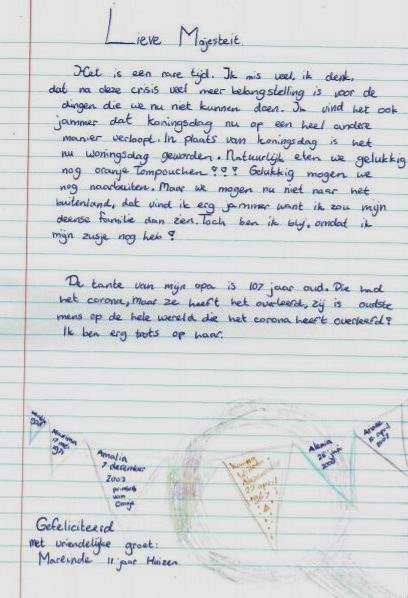 Lieve Majesteit.
Het is een rare tijd. Ik mis veel, ik denk,
dat na deze crisis veel meer belangstelling is voor de
dingen die we nu niet kunnen doen. Ik vind het ook
jammer dat koningsdag nu op een heel andere
manier verloopt. In plaats van koningsdag is het
nu woningsdag geworden. Natuurlijk eten we gelukkig
nog oranje Tompoucen!!! Gelukkig mogen we
nog naarbuiten. Maar we mogen nu niet naar het
buitenland, dat vind ik erg jammer want ik zou mijn
deense familie dan zien. Toch ben ik blij, omdat ik
mijn zusje nog heb!
De tante van mijn opa is 107 jaar oud. Die had
het corona, maar ze heeft het overleefd, zij is oudste
mens op de hele wereld die het corona heeft overleefd!
Ik ben erg trots op haar.
Maxima
17 mei
1971
Amalia
7 december
2003
prinses
van
Oranje
Koning
Willem
Alexander
27 april
1967
Alexia
26 juni
2005
Ariane
10 april
2007
Gefeliciteerd
met vriendelijke groet:
Mareinde 11 jaar Huizen.